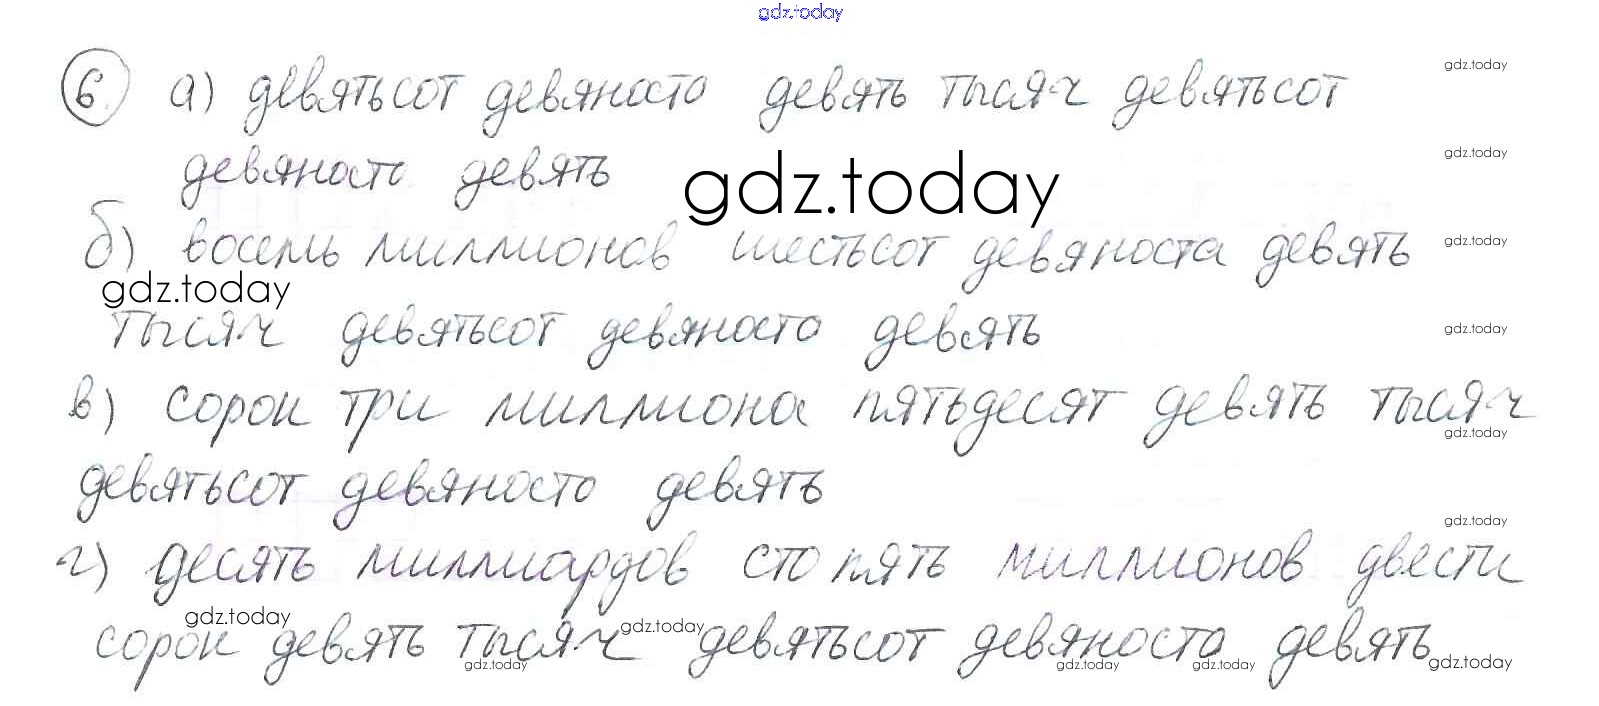 gdz.today
6 а) девятьсот девяносто девять тысяч девятьсот
gdz.today
девяносто девять
gdz.today
gdz.today
б) восемь миллионов шестьсот девяноста девять
gdz.today
gdz.today
тысяч девятьсот девяносто девять
gdz.today
в) сорок три миллиона пятьдесят девять тысяч
gdz.today
девятьсот девяносто девять
gdz.today
г) десять миллиардов сто пять миллионов двести
gdz.today
gdz.today
сорок девять тысяч девятьсот девяноста девять
gdz.today
gdz.today
gdz.today
gdz.today